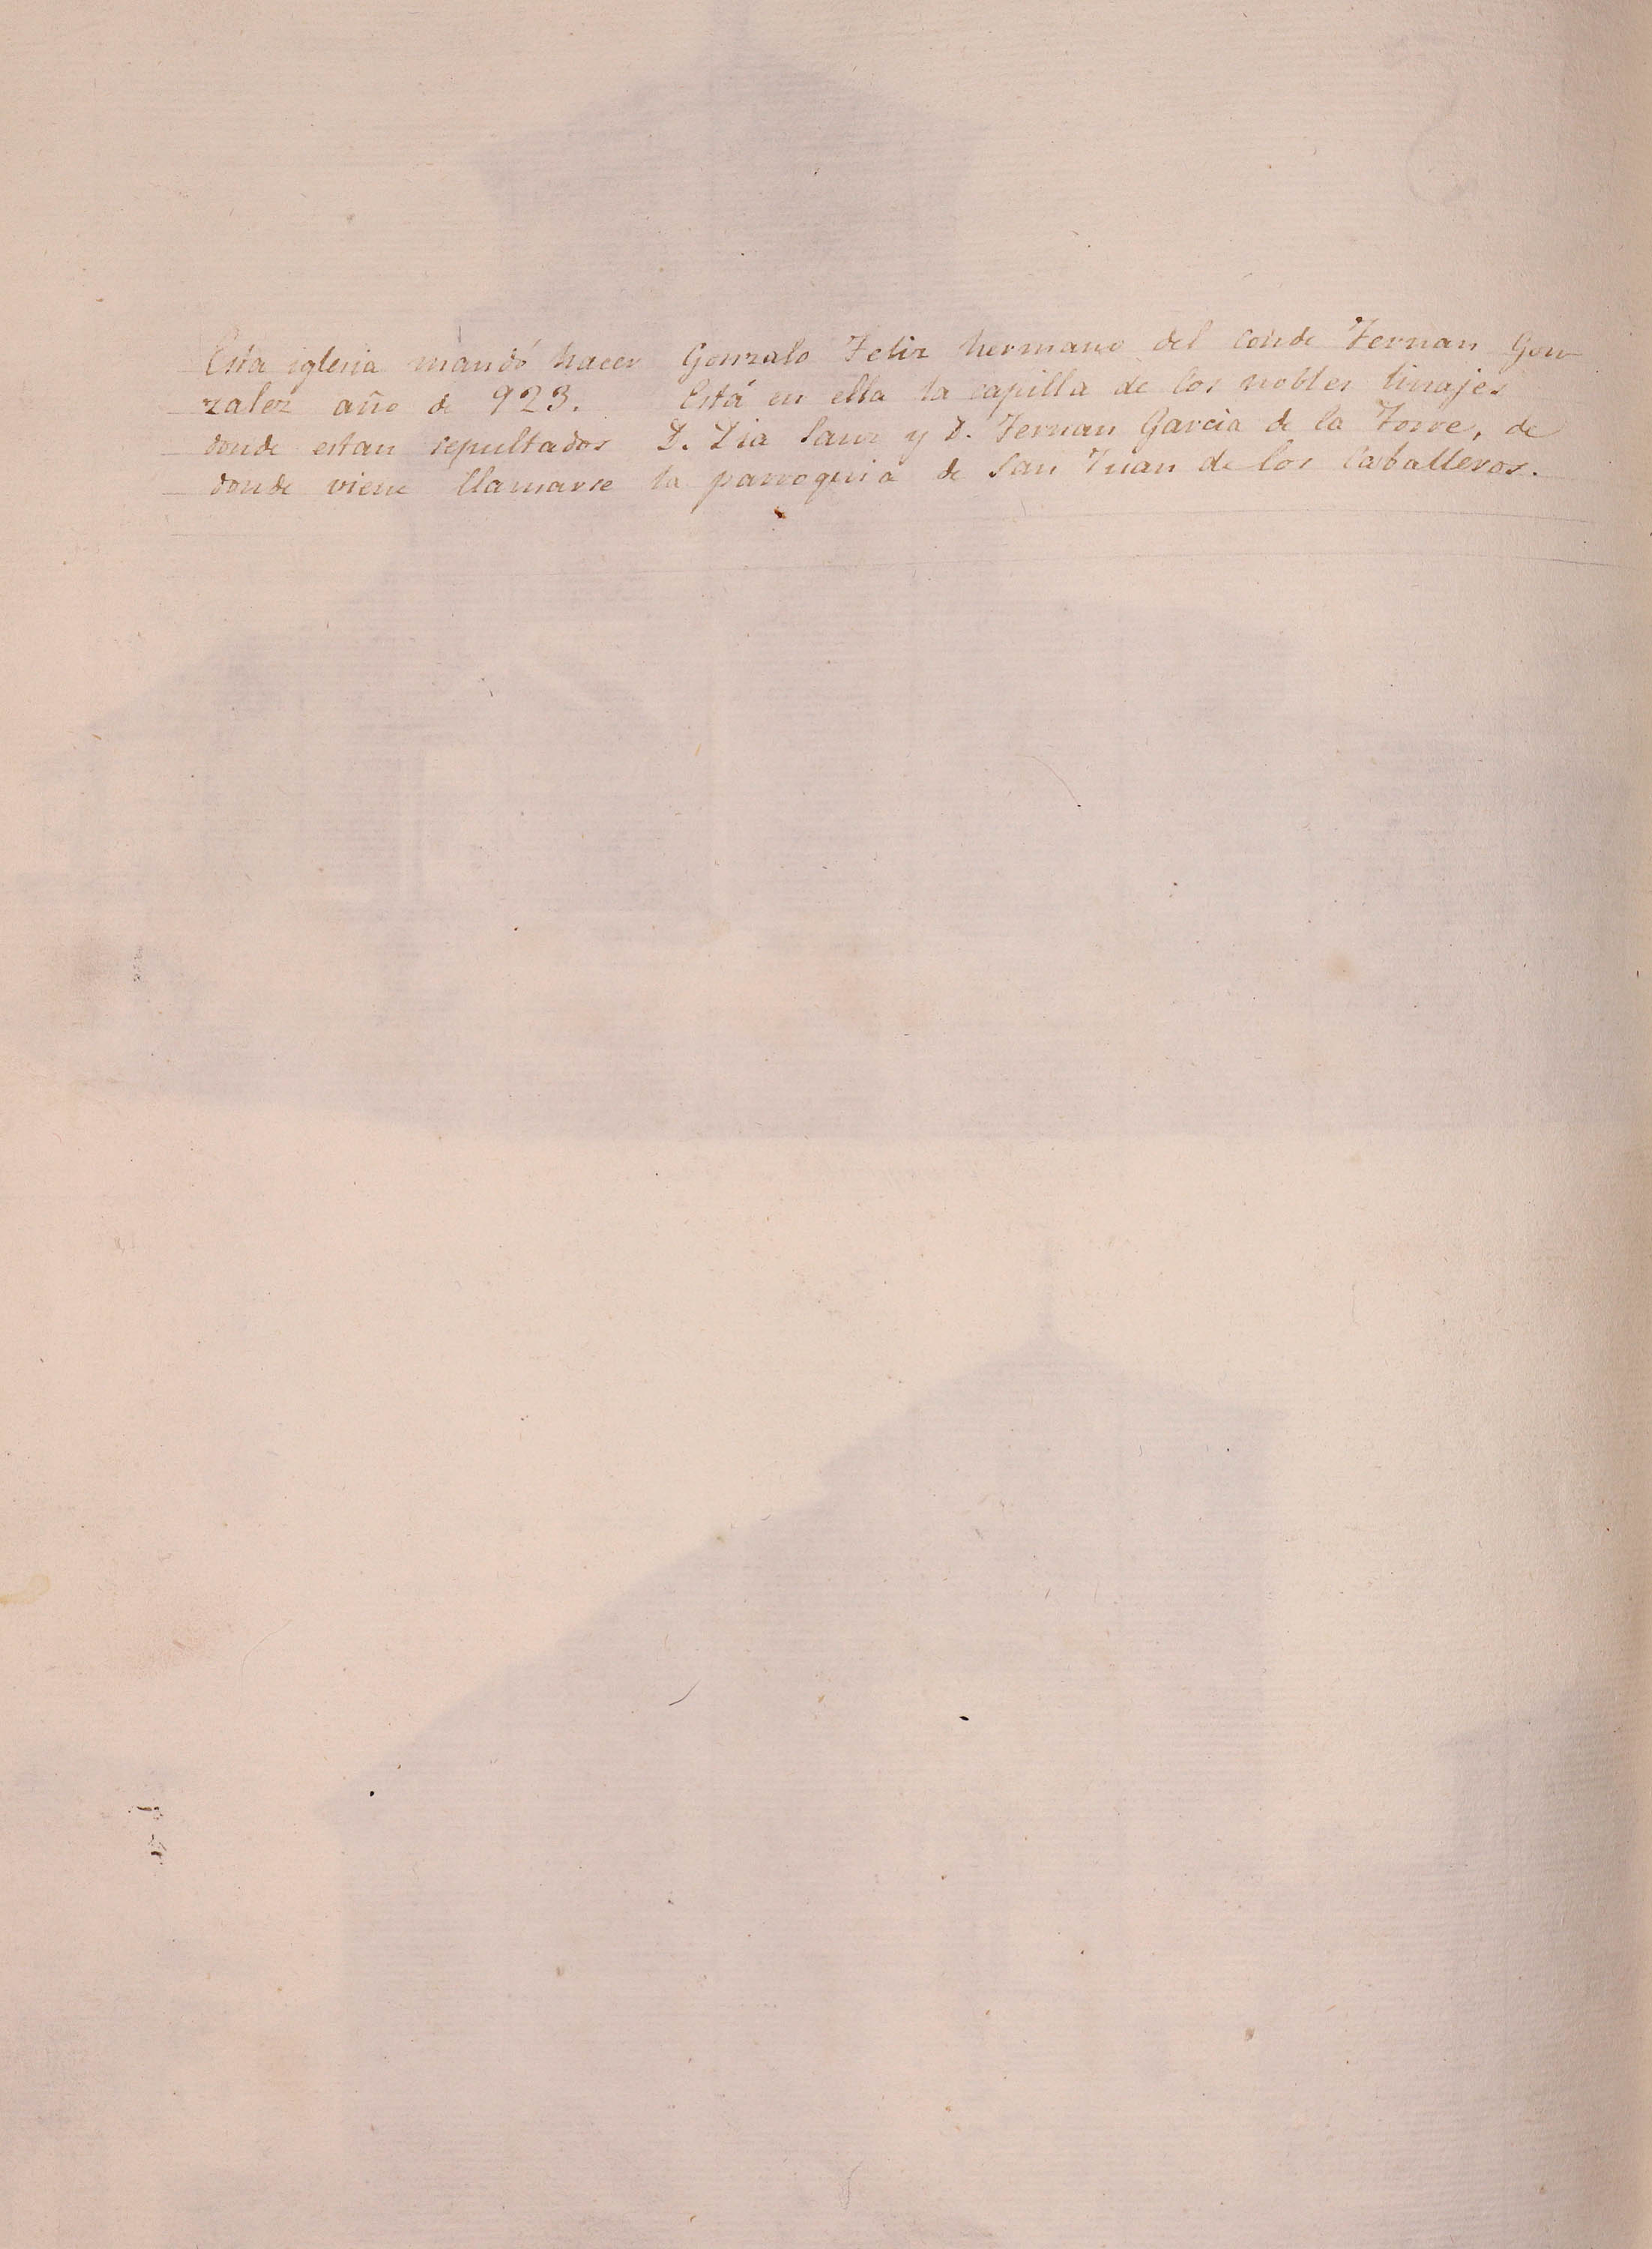 Esta iglesia mandó hacer Gonzalo Feliz hermano del Conde Fernan Gon-
zalez año de 923. Está en ella la capilla de los nobles linajes
donde estan sepultados D. Dia Sanz y D. Fernan Garcia de la Torre, de
donde viene llamarse la parroquia de San Juan de los Caballeros.